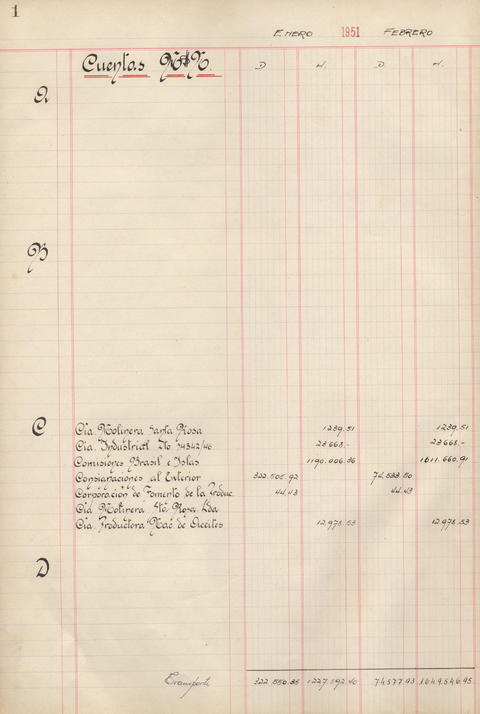 1
ENERO 1951 FEBRERO
Cuentas M$N.
D H. D H.
A
B
C
Cía. Molinera Santa Rosa 1239.51 1239.51
Cía. Industrial Dto 34342/46 23668.- 23668.-
Comisiones Brasil e Islas 1190.006.36 1611.660.91
Consignaciones al Exterior 322.505.92 74.533.50
Corporación de Fomento de la Produc. 44.43 44.43
Cía Molinera Sta. Rosa Lda
Cía. Productora Nac. de Aceites 12.978.53 12.978.53
D
Transporte 322.550.35 1227.892.40 74577.93 1649.546.95